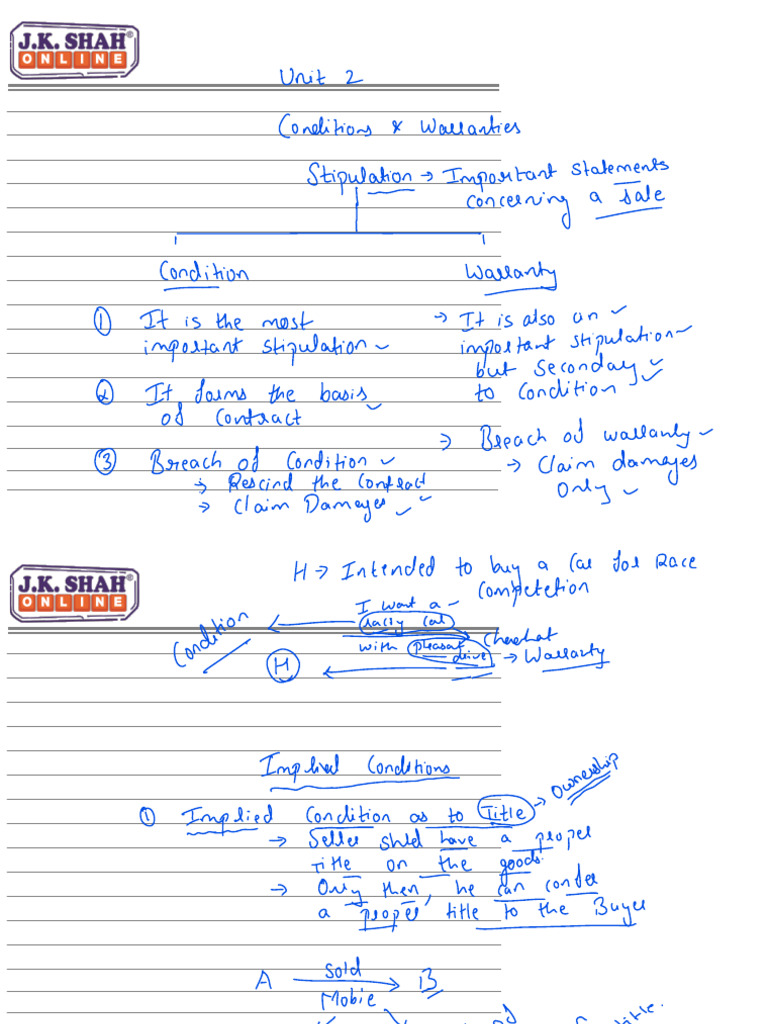 J.K. SHAH®
ONLINE
Unit 2
Conditions & Warranties
Stipulation → Important statements
concerning a sale
Condition
Warranty
① It is the most
important stipulation
→ It is also an
important stipulation
but secondary
to condition
② It forms the basis
of contract
③ Breach of condition
→ Rescind the contract
→ Claim Damages
→ Breach of warranty
→ Claim damages
only
H → Intended to buy a car for Race
competetion
J.K. SHAH®
ONLINE
I want a
racing car
with pleasant
drive
Condition
H
→ Warranty
Implied Conditions
① Implied Condition as to Title → ownership
→ Seller shld have a proper
title on the goods.
→ Only then, he can confer
a proper title to the Buyer
A Sold B
Mobie
title.